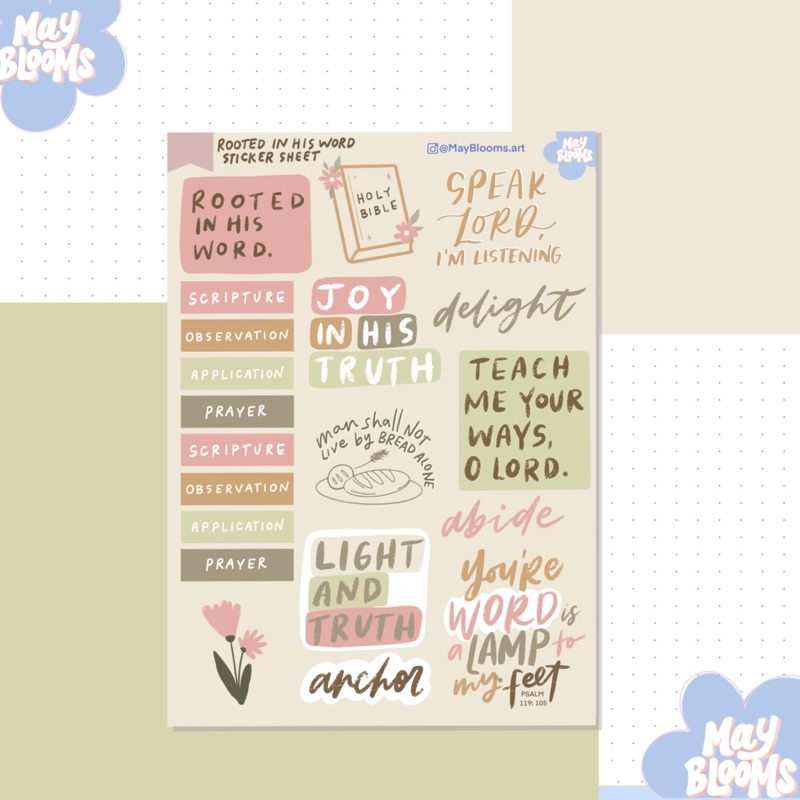 May
BLOOMS
ROOTED IN HIS WORD
STICKER SHEET
@MayBlooms.art
May
BLOOMS
ROOTED
IN HIS
WORD.
HOLY
BIBLE
SPEAK
LORD,
I'M LISTENING
SCRIPTURE
OBSERVATION
APPLICATION
PRAYER
SCRIPTURE
OBSERVATION
APPLICATION
PRAYER
JOY
IN HIS
TRUTH
delight
TEACH
ME YOUR
WAYS,
O LORD.
man shall NOT
live by BREAD ALONE
abide
LIGHT
AND
TRUTH
anchor
you're
WORD is
a LAMP to
my feet
PSALM
119:105
May
BLOOMS